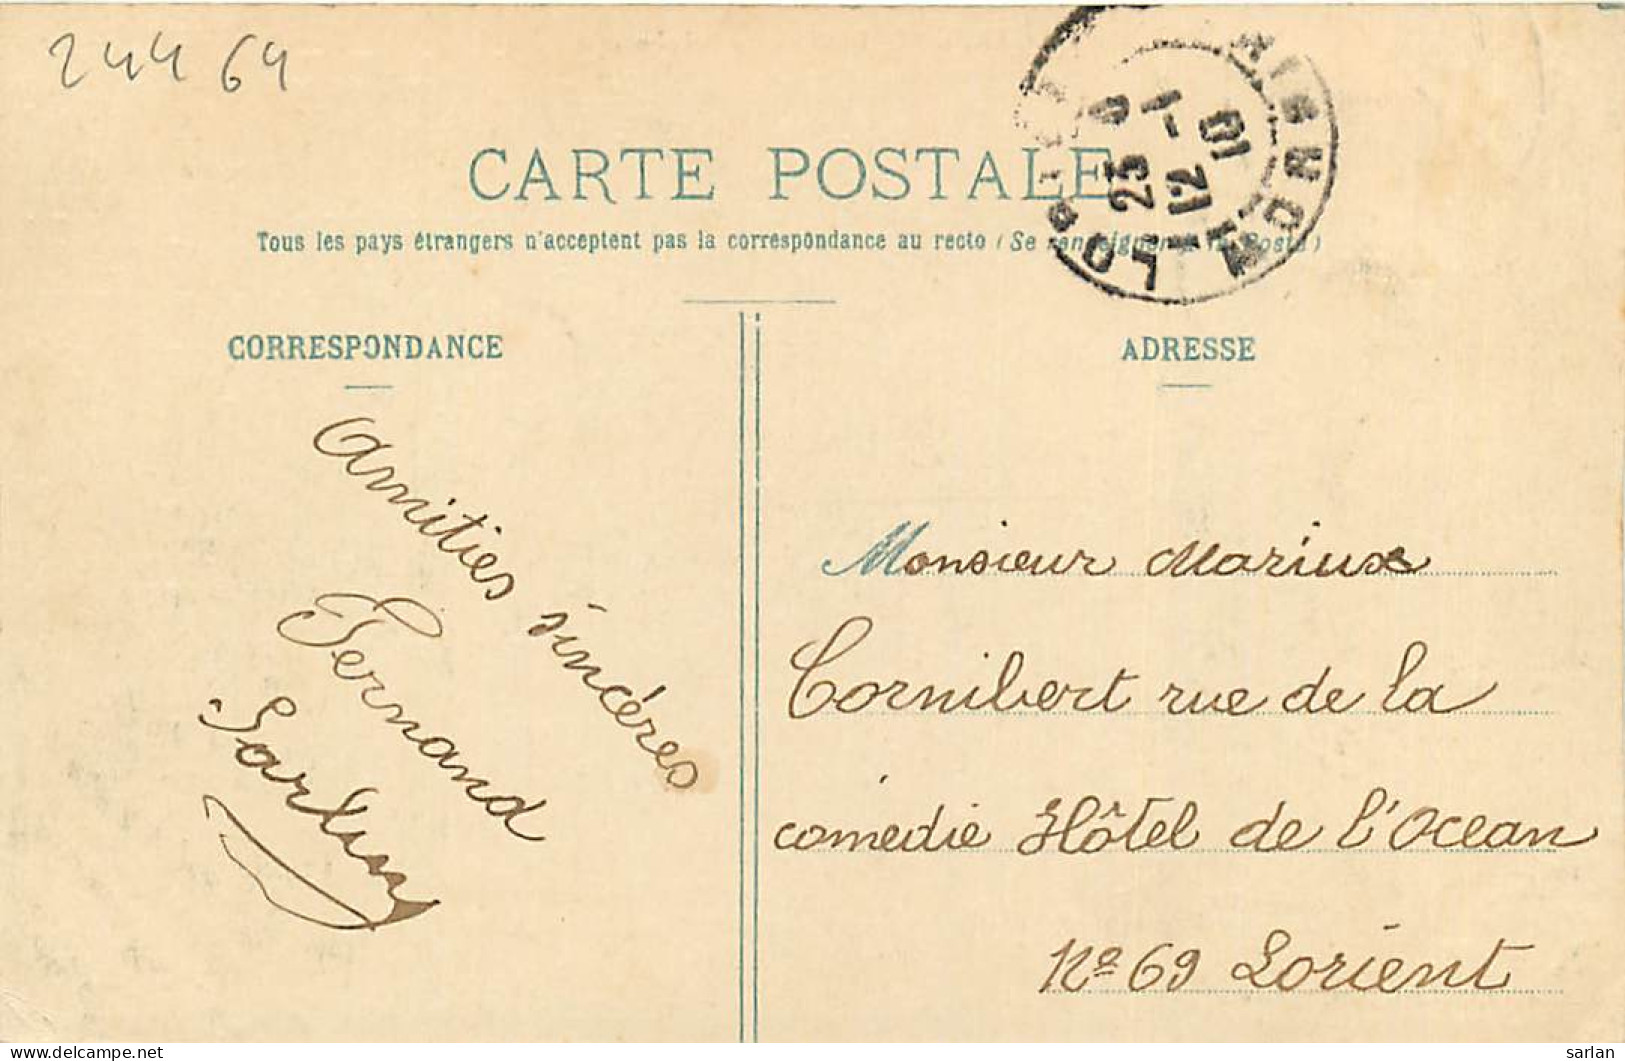 24464
CARTE POSTALE
Tous les pays étrangers n'acceptent pas la correspondance au recto (Se renseigner à la Poste)
CORRESPONDANCE
Amitiés sincéres
Fernand
ADRESSE
Monsieur Marius
Cornibert rue de la
comédie Hôtel de l'Ocean
No 69 Lorient
MORBIHAN
23
1-12
10
delcampe.net
sarlan